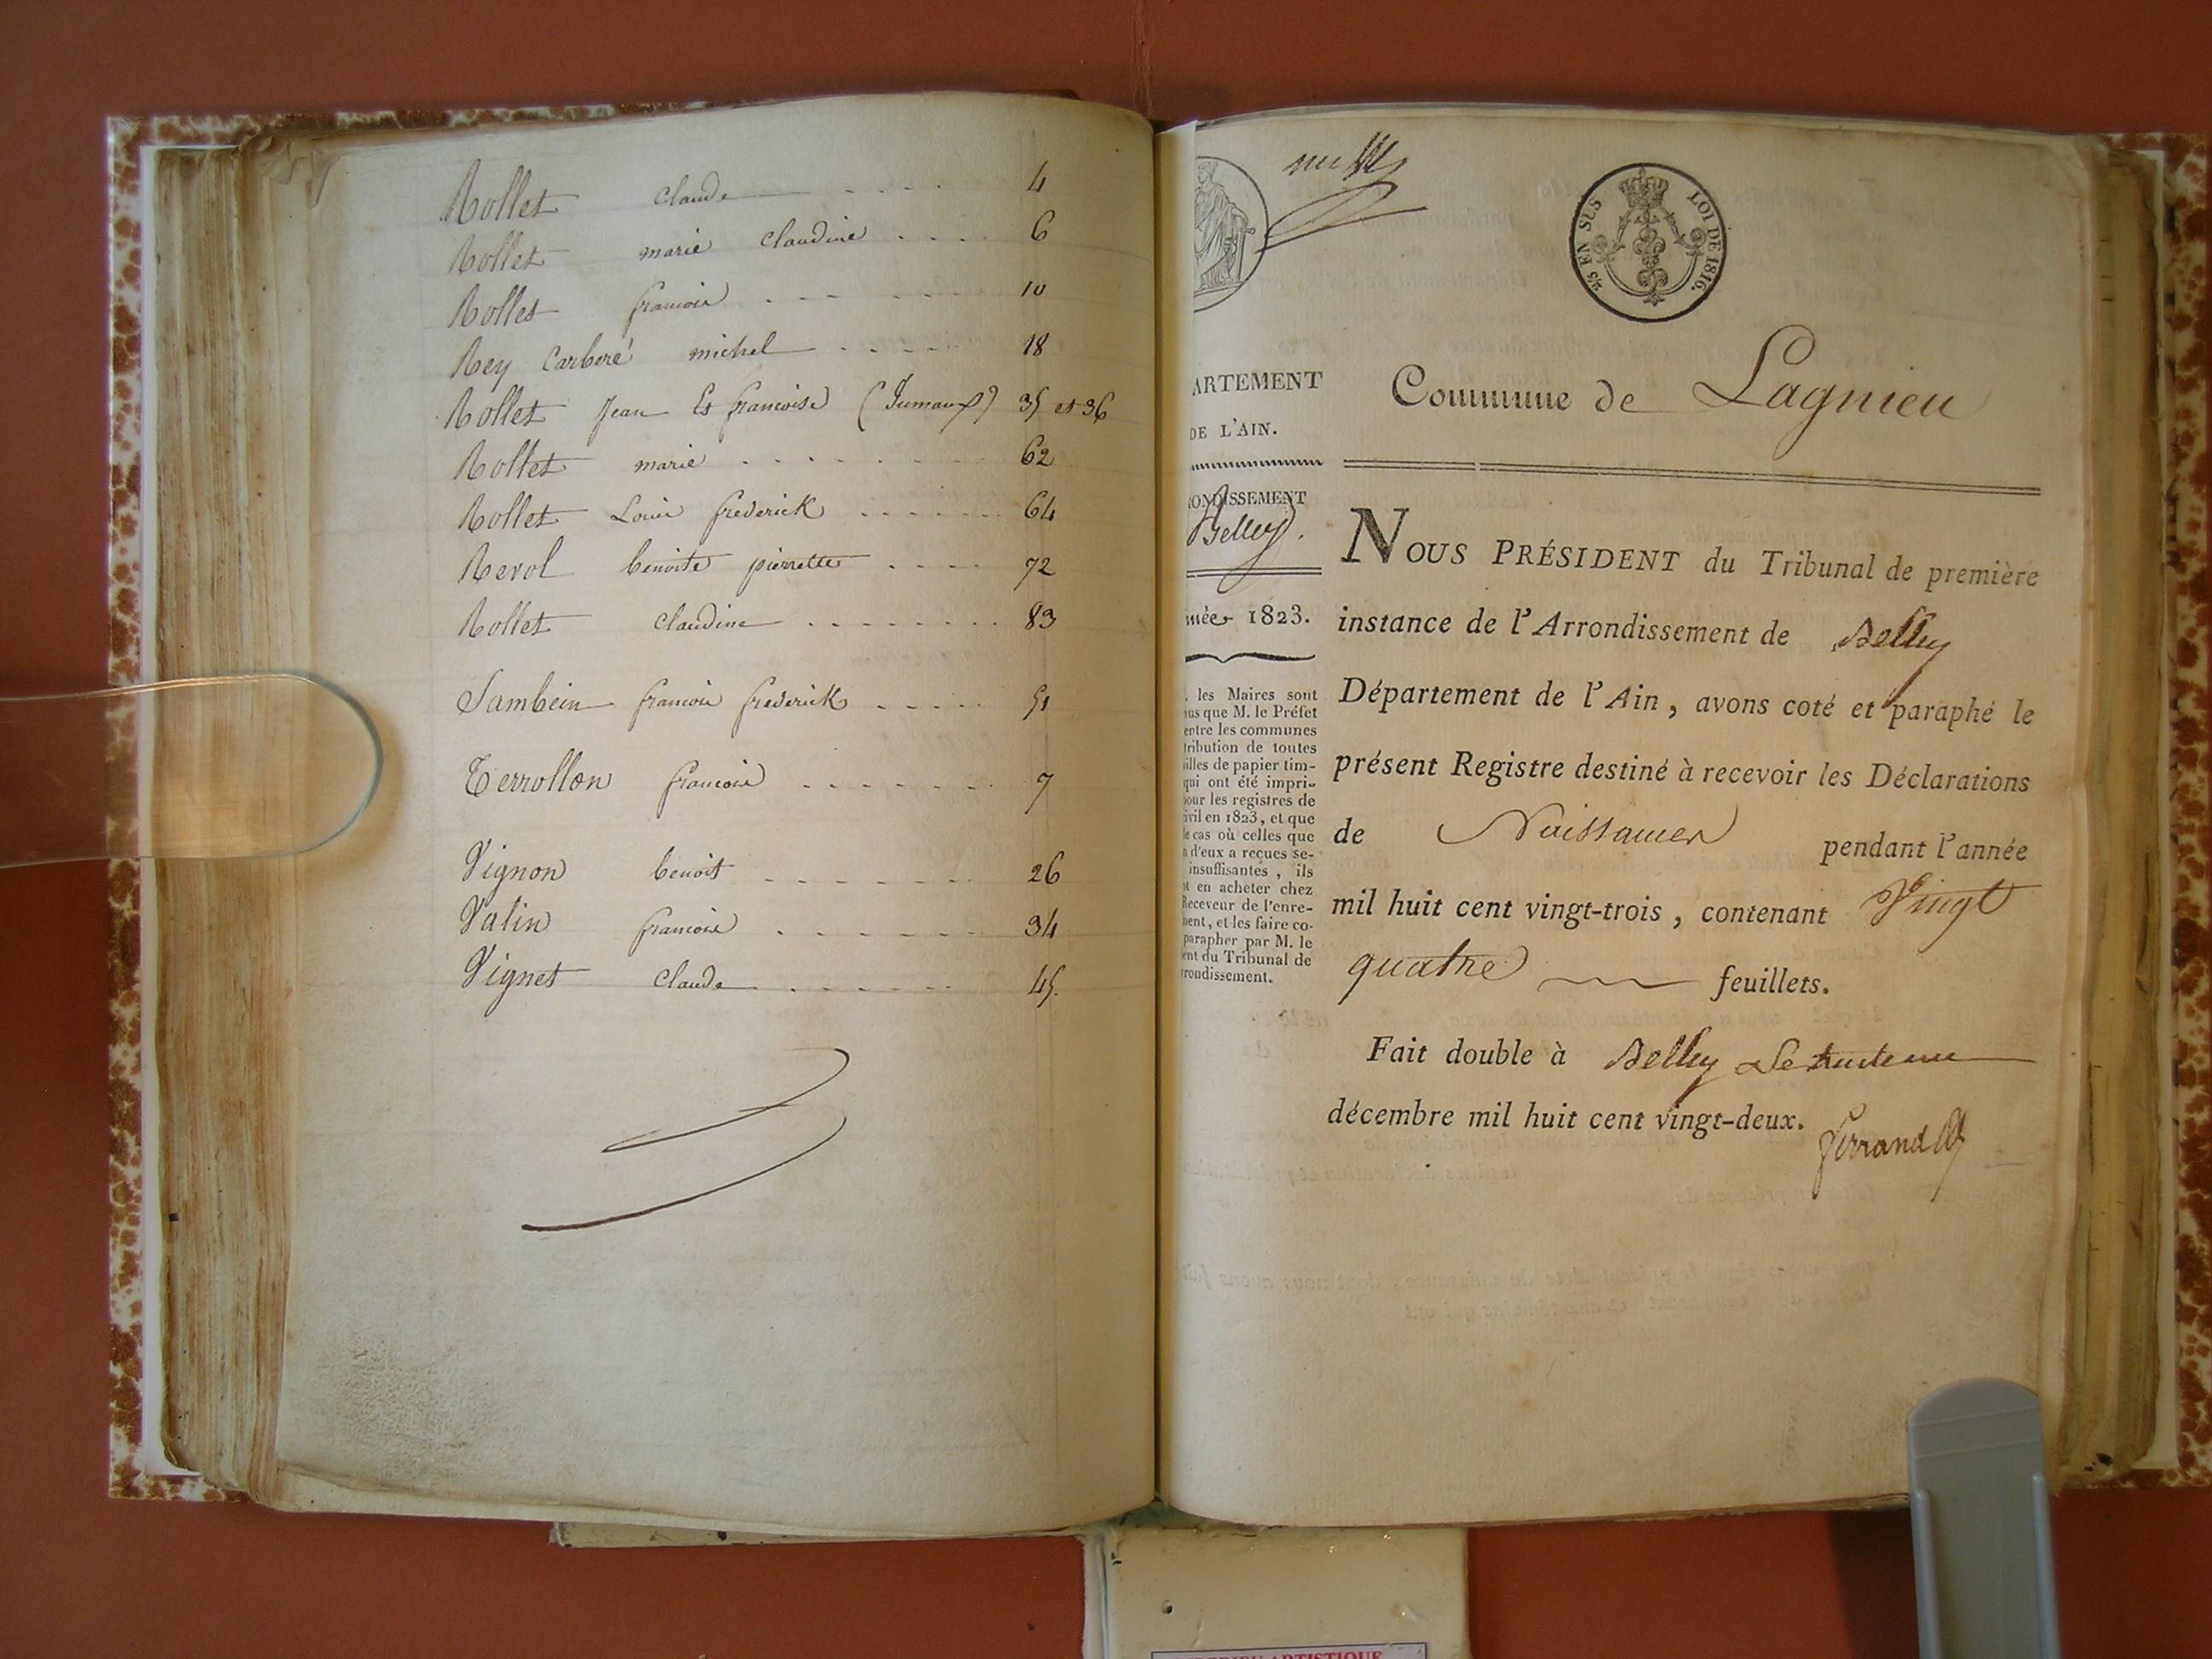 Rollet claude 4
Rollet marie claudine 6
Rollet francois 10
Rey Carboré michel 18
Rollet Jean Et francoise (Jumaux) 35 et 36
Rollet marie 62
Rollet Louis frederick 64
Revol benoite pierrette 72
Rollet claudine 83
Sambein francois frederick 51
Terrollon francois 7
Vignon benoit 26
Valin francois 34
Vignet claude 45.
45 EN SUS
LOI DE 1816.
ARTEMENT
DE L'AIN.
ONDISSEMENT
Belley.
née 1823.
. les Maires sont
nus que M. le Préfet
entre les communes
tribution de toutes
illes de papier tim-
qui ont été impri-
our les registres de
ivil en 1823, et que
e cas où celles que
n d'eux a reçues se-
insuffisantes, ils
t en acheter chez
Receveur de l'enre-
ment, et les faire co-
parapher par M. le
ent du Tribunal de
rrondissement.
Commune de Lagnieu
NOUS PRÉSIDENT du Tribunal de première
instance de l'Arrondissement de Belley
Département de l'Ain, avons coté et paraphé le
présent Registre destiné à recevoir les Déclarations
de Naissances pendant l'année
mil huit cent vingt-trois, contenant Vingt
quatre feuillets.
Fait double à Belley Le
décembre mil huit cent vingt-deux.
Ferrand
ARTISTIQUE